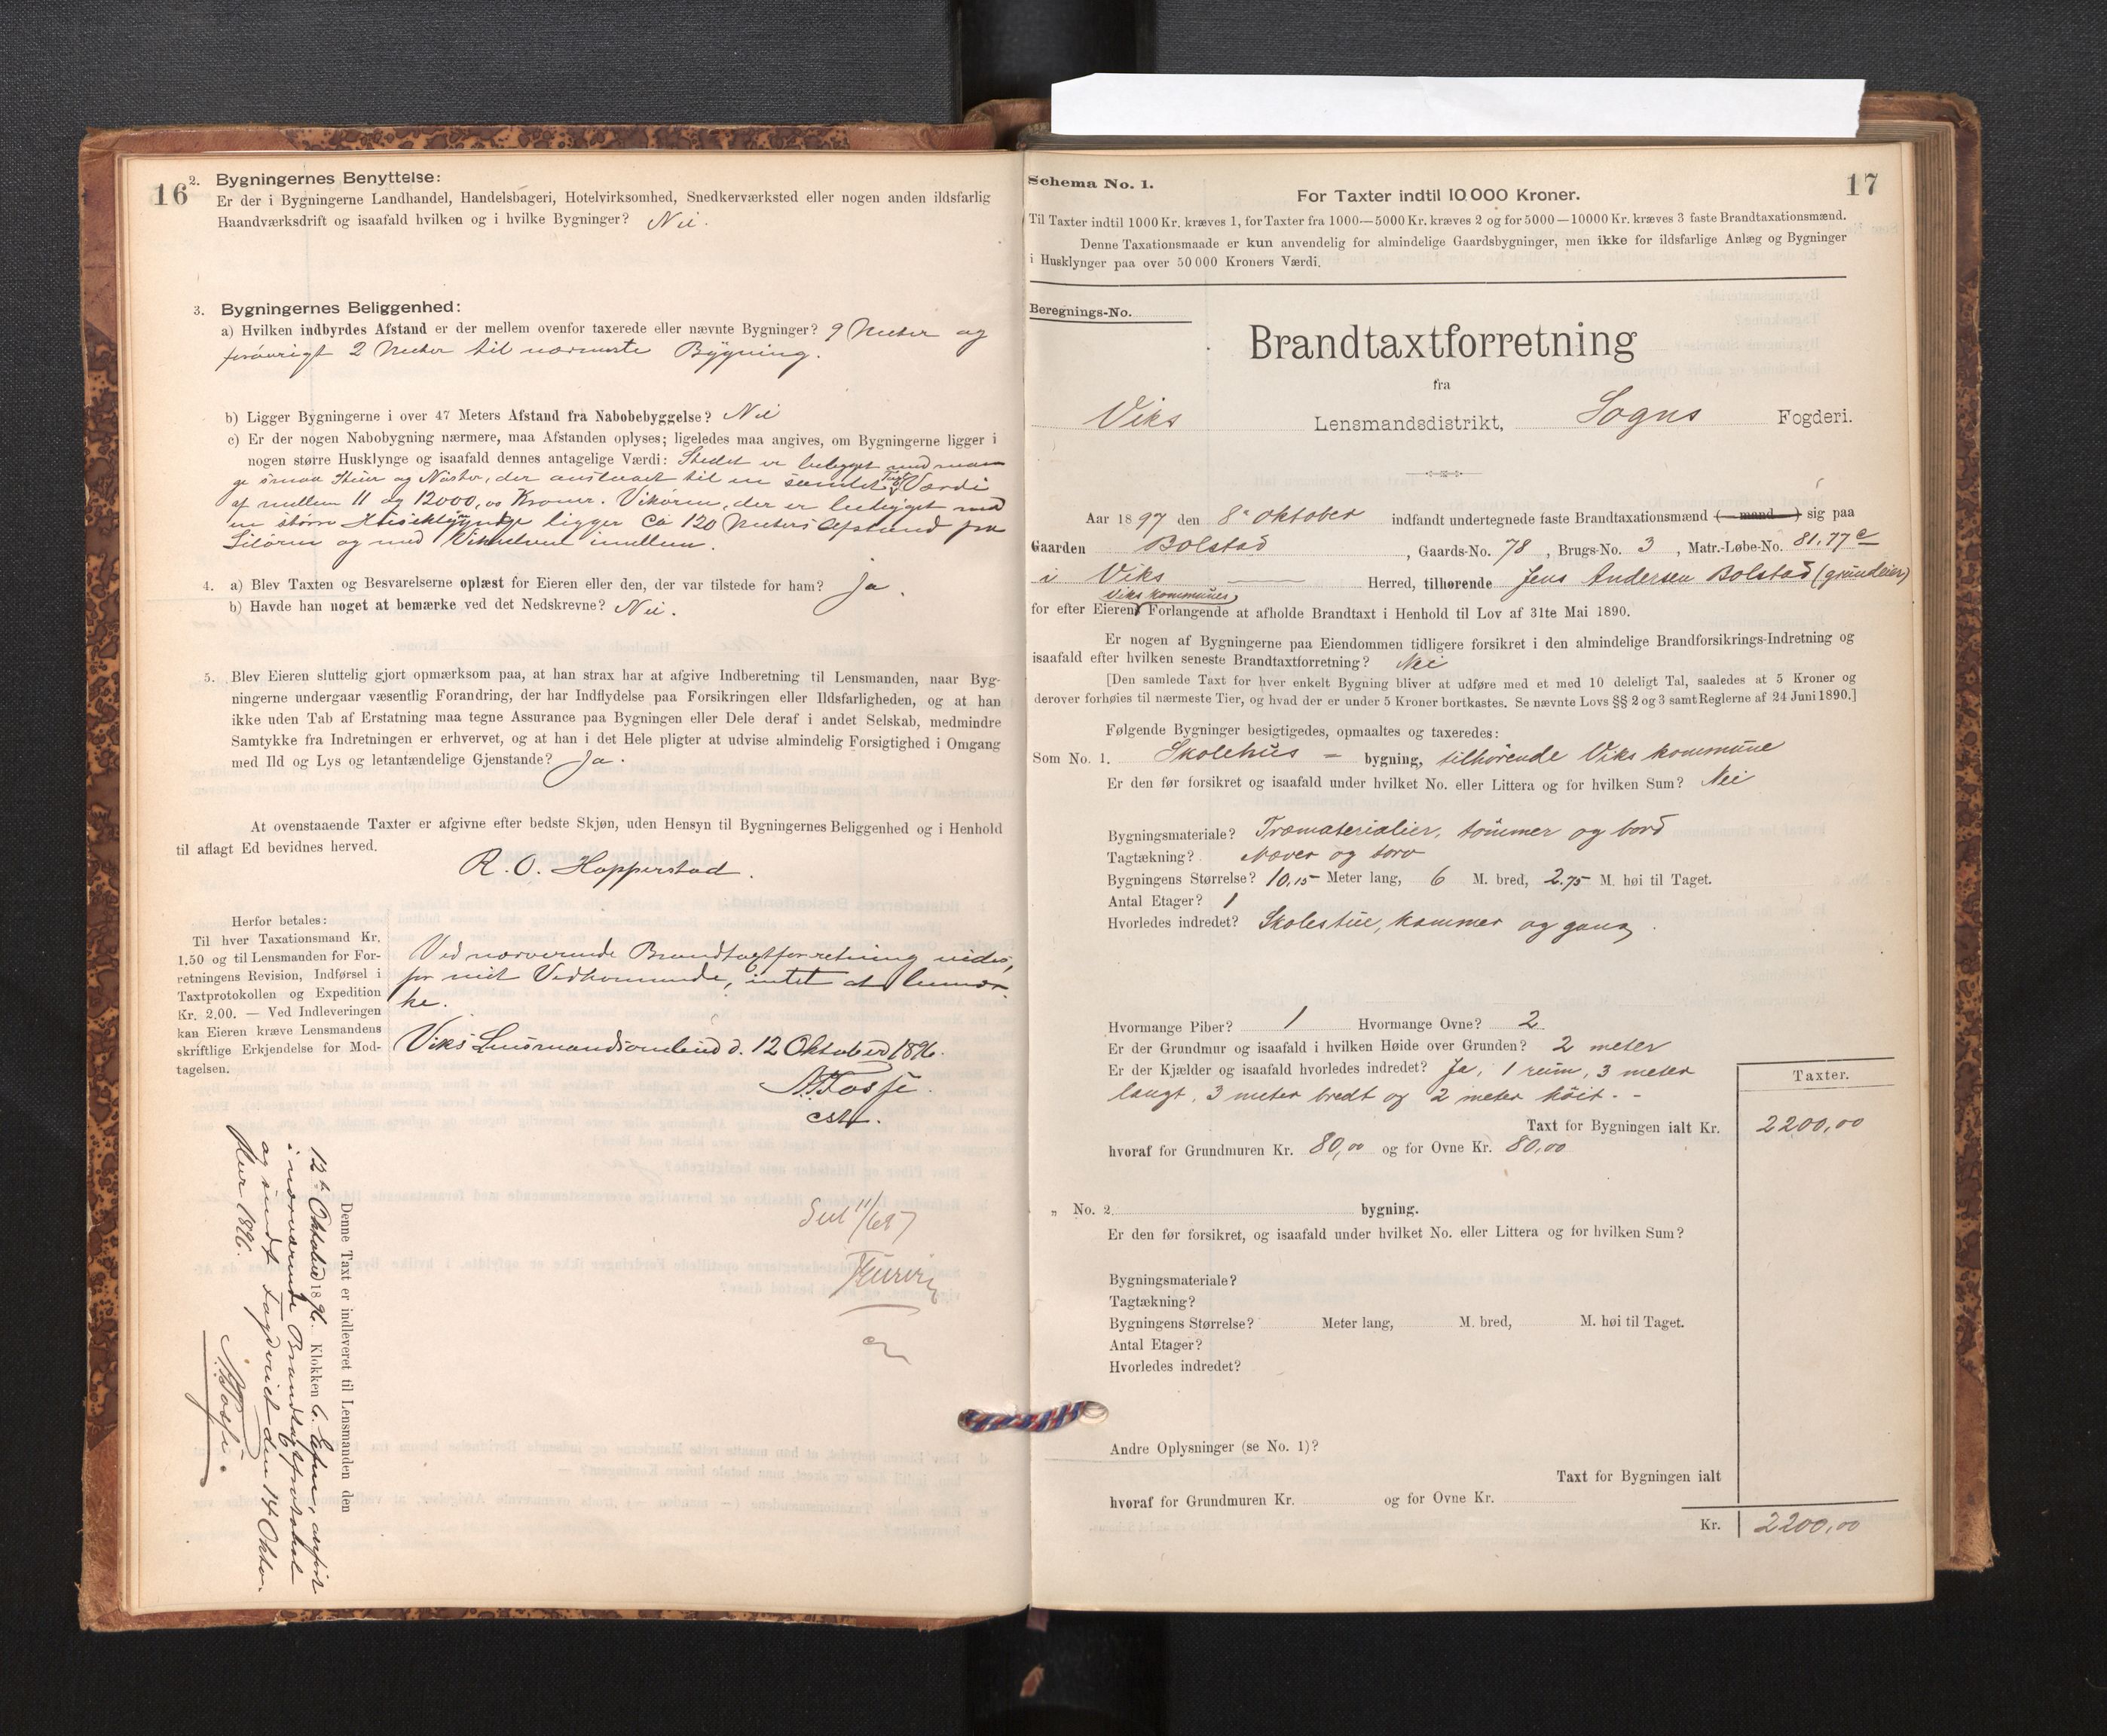 16
2. Bygningernes Benyttelse:
Er der i Bygningerne Landhandel, Handelsbageri, Hotelvirksomhed, Snedkerværksted eller nogen anden ildsfarlig
Haandværksdrift og isaafald hvilken og i hvilke Bygninger? Nei.
3. Bygningernes Beliggenhed:
a) Hvilken indbyrdes Afstand er der mellem ovenfor taxerede eller nævnte Bygninger? 9 Meter og
forøvrigt 2 Meter til nærmeste Bygning.
b) Ligger Bygningerne i over 47 Meters Afstand fra Nabobebyggelse? Nei
c) Er der nogen Nabobygning nærmere, maa Afstanden oplyses; ligeledes maa angives, om Bygningerne ligger i
nogen større Husklynge og isaafald dennes antagelige Værdi: Stedet er bebygget med man-
ge smaa Huse og Nøster, der ansloaes til en samlet Taxt Værdi
af mellem 11 og 12000,00 Kroner. Vikøren, der er bebygget med
en større Husklynge ligger Ca 120 Meters Afstand fra
og med Vikelven imellem.
4. a) Blev Taxten og Besvarelserne oplæst for Eieren eller den, der var tilstede for ham? Ja.
b) Havde han noget at bemærke ved det Nedskrevne? Nei.
5. Blev Eieren sluttelig gjort opmærksom paa, at han strax har at afgive Indberetning til Lensmanden, naar Byg-
ningerne undergaar væsentlig Forandring, der har Indflydelse paa Forsikringen eller Ildsfarligheden, og at han
ikke uden Tab af Erstatning maa tegne Assurance paa Bygningen eller Dele deraf i andet Selskab, medmindre
Samtykke fra Indretningen er erhvervet, og at han i det Hele pligter at udvise almindelig Forsigtighed i Omgang
med Ild og Lys og letantændelige Gjenstande? Ja.
At ovenstaaende Taxter er afgivne efter bedste Skjøn, uden Hensyn til Bygningernes Beliggenhed og i Henhold
til aflagt Ed bevidnes herved.
R. O. Hopperstad.
Herfor betales:
Til hver Taxationsmand Kr.
1.50 og til Lensmanden for For-
retningens Revision, Indførsel i
Taxtprotokollen og Expedition
Kr. 2.00. — Ved Indleveringen
kan Eieren kræve Lensmandens
skriftlige Erkjendelse for Mod-
tagelsen.
Ved nærværende Brandtaxtforretning vides,
for mit Vedkommende, intet at bemær-
ke.
Viks Lensmandsombud d. 12 Oktober 1896.
A. Fosse.
cst.
Denne Taxt er indleveret til Lensmanden den
12te Oktober 1896. Klokken 6 Efterm., anført
i nærværende Brandtaxtprotokol
og sendt Fogderiet den 14 Okto-
ber 1896.
A. Fosse.
17
Schema No. 1.
For Taxter indtil 10 000 Kroner.
Til Taxter indtil 1000 Kr. kræves 1, for Taxter fra 1000—5000 Kr. kræves 2 og for 5000—10000 Kr. kræves 3 faste Brandtaxationsmænd.
Denne Taxationsmaade er kun anvendelig for almindelige Gaardsbygninger, men ikke for ildsfarlige Anlæg og Bygninger
i Husklynger paa over 50 000 Kroners Værdi.
Beregnings-No.
Brandtaxtforretning
fra
Viks Lensmandsdistrikt, Sogns Fogderi.
Aar 1897 den 8de Oktober indfandt undertegnede faste Brandtaxationsmænd (— mand —) sig paa
Gaarden Bolstad, Gaards-No. 78, Brugs-No. 3, Matr.-Løbe-No. 81.77c
i Viks — Herred, tilhørende Jens Andersen Bolstad (grundeier)
Viks kommunes
for efter Eieren Forlangende at afholde Brandtaxt i Henhold til Lov af 31te Mai 1890.
Er nogen af Bygningerne paa Eiendommen tidligere forsikret i den almindelige Brandforsikrings-Indretning og
isaafald efter hvilken seneste Brandtaxtforretning? Nei
[Den samlede Taxt for hver enkelt Bygning bliver at udføre med et med 10 deleligt Tal, saaledes at 5 Kroner og
derover forhøies til nærmeste Tier, og hvad der er under 5 Kroner bortkastes. Se nævnte Lovs §§ 2 og 3 samt Reglerne af 24 Juni 1890.]
Følgende Bygninger besigtigedes, opmaaltes og taxeredes:
Som No. 1. Skolehus - bygning, tilhørende Viks kommune
Er den før forsikret og isaafald under hvilket No. eller Littera og for hvilken Sum? Nei
Bygningsmateriale? Træmaterialier, tømmer og bord
Tagtækning? Næver og torv
Bygningens Størrelse? 10,15 Meter lang, 6 M. bred, 2.75 M. høi til Taget.
Antal Etager? 1
Hvorledes indredet? Skolestue, kammer og gang.
Hvormange Piber? 1 Hvormange Ovne? 2
Er der Grundmur og isaafald i hvilken Høide over Grunden? 2 meter
Er der Kjælder og isaafald hvorledes indredet? Ja, 1 rum, 3 meter
langt, 3 meter bredt og 2 meter høit. -
Taxter.
Taxt for Bygningen ialt Kr. 2200,00
hvoraf for Grundmuren Kr. 80,00 og for Ovne Kr. 80,00
„ No. 2 bygning.
Er den før forsikret, og isaafald under hvilket No. eller Littera og for hvilken Sum?
Bygningsmateriale?
Tagtækning?
Bygningens Størrelse? Meter lang, M. bred, M. høi til Taget.
Antal Etager?
Hvorledes indredet?
Andre Oplysninger (se No. 1)?
Taxt for Bygningen ialt
hvoraf for Grundmuren Kr. og for Ovne Kr.
Kr. 2200,00